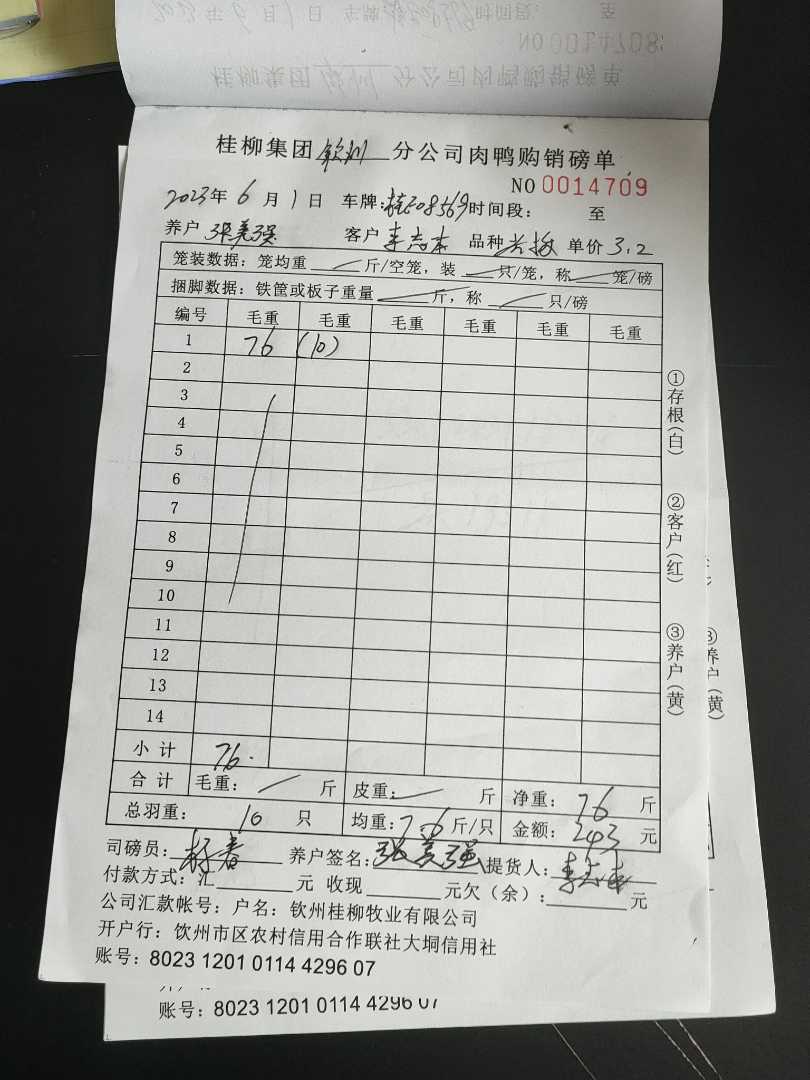 桂柳集团钦州分公司肉鸭购销磅单
NO 0014709
2023年6月1日 车牌:桂E08569 时间段: 至
养户 张美强 客户 李志本 品种 单价 3.2
笼装数据:笼均重 斤/空笼,装 只/笼,称 笼/磅
捆脚数据:铁筐或板子重量 斤,称 只/磅
编号 毛重 毛重 毛重 毛重 毛重 毛重
1 76 (10)
2
3
4
5
6
7
8
9
10
11
12
13
14
小计 76.
合计 毛重: 斤 皮重: 斤 净重: 76 斤
总羽重: 10 只 均重: 7.6 斤/只 金额: 243 元
司磅员: 养户签名: 张美强 提货人: 李志本
付款方式:汇 元 收现 元欠(余): 元
公司汇款帐号:户名:钦州桂柳牧业有限公司
开户行:饮州市区农村信用合作联社大垌信用社
账号:8023 1201 0114 4296 07
①存根(白) ②客户(红) ③养户(黄)
③养户(黄)
账号:8023 1201 0114 4296 07